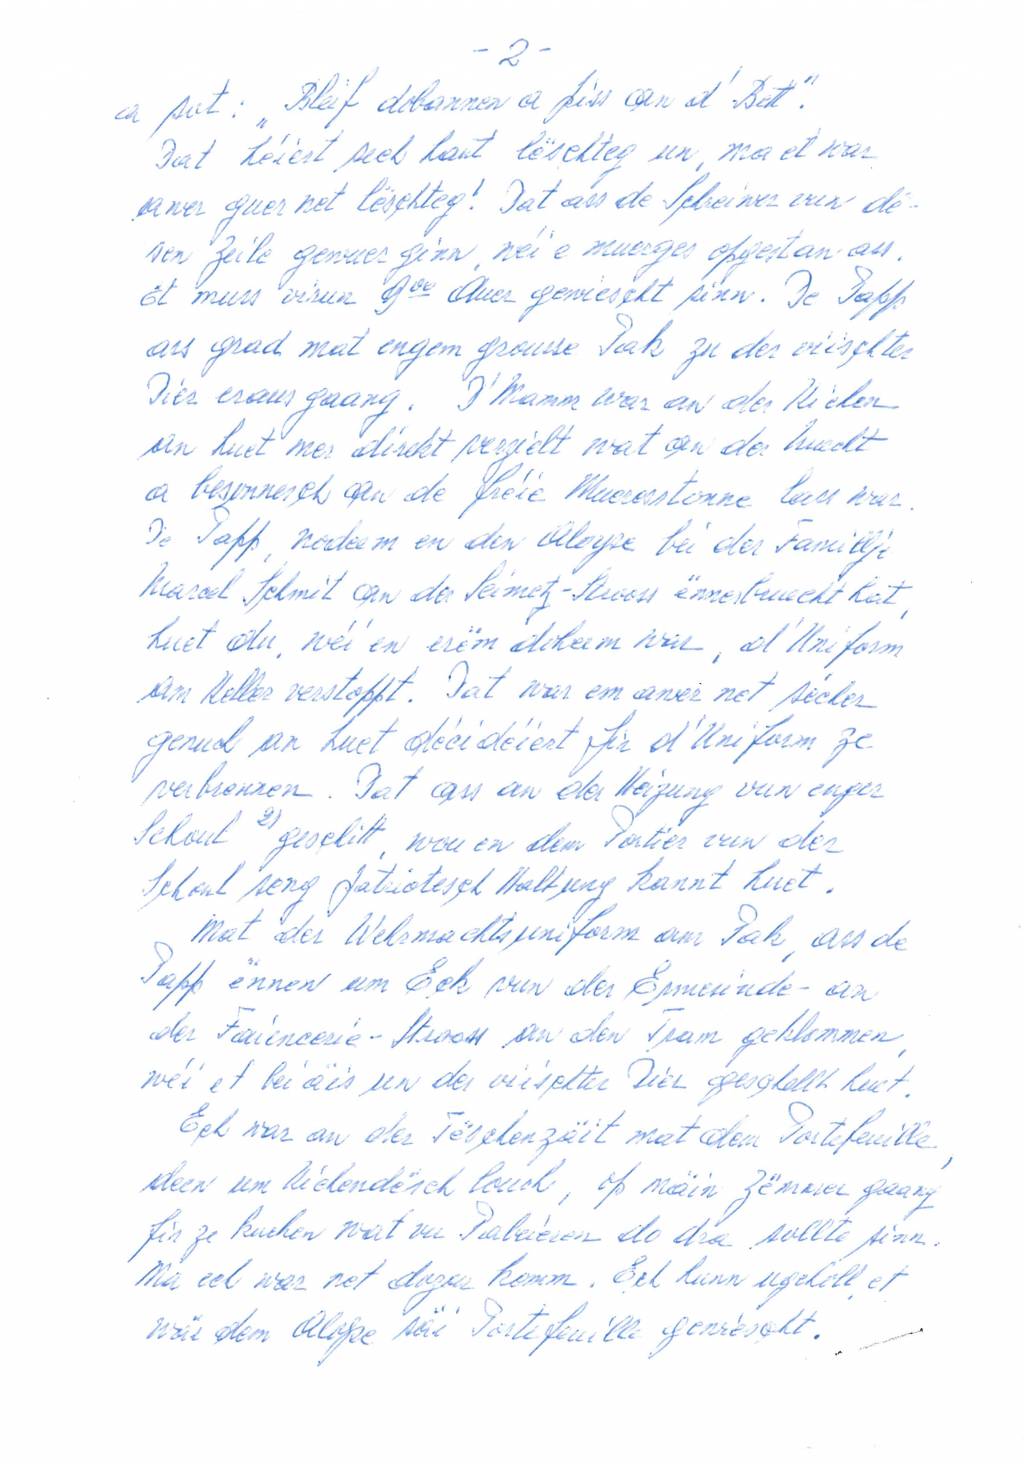 - 2 -
ea sot: „Bleif dobannen a piss an d'Bett".
Dat héiert sech haut lëschteg un, ma et war
awer guer net lëschteg! Dat ass de Schreiwer vun dë-
sen Zeile genuer ginn, wéi e muerges opgestan ass.
Et muss virun 9ºº Auer gewiescht sinn. De Papp
ass grad mat engem grousse Pak zu der viischter
Dier eraus gaang. D'Mamm war an der Kichen
an huet mer direkt verzielt wat an der Nuecht
a besonnesch an de fréie Mueresstonne lass war.
De Papp, nodeem en den Aloyse bei der Famillje
Marcel Schmit an der Seimetz-Strooss ënnerbruecht hat,
huet du, wéi en erëm doheem war, d'Uniform
am Keller verstoppt. Dat war em awer net sécher
genuch an huet décidéiert fir d'Uniform ze
verbrennen. Dat ass an der Heizung vun enger
Schoul 2) geschitt, wou en dem Portier vun der
Schoul seng patriotesch Haltung kannt huet.
Mat der Wehrmachtsuniform am Pak, ass de
Papp ënnen um Eck vun der Ermesinde- an
der Faiencerie-Strooss an den Tram geklommen,
wéi et bei äis un der viischter Dier geschellt huet.
Ech war an der Tëschenzäit mat dem Portefeuille,
deen um Kichendësch louch, op mäin Zëmmer gaang
fir ze kucken wat vu Pabeieren do dra sollte sinn.
Ma ech war net dozou komm. Ech hunn ugeholl, et
wär dem Aloyse säi Portefeuille gewiescht.